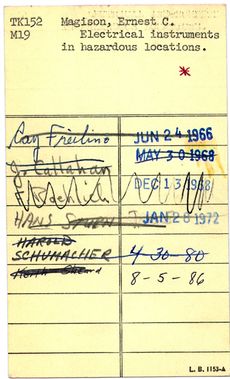 TK152 Magison, Ernest C.
M19 Electrical instruments
in hazardous locations.
*
Ray Freilino JUN 24 1966
J. Callahan MAY 30 1968
DEC 13 1968
HANS JAN 28 1972
HAROLD
SCHUMACHER 4-30-80
8-5-86
L. B. 1153-A